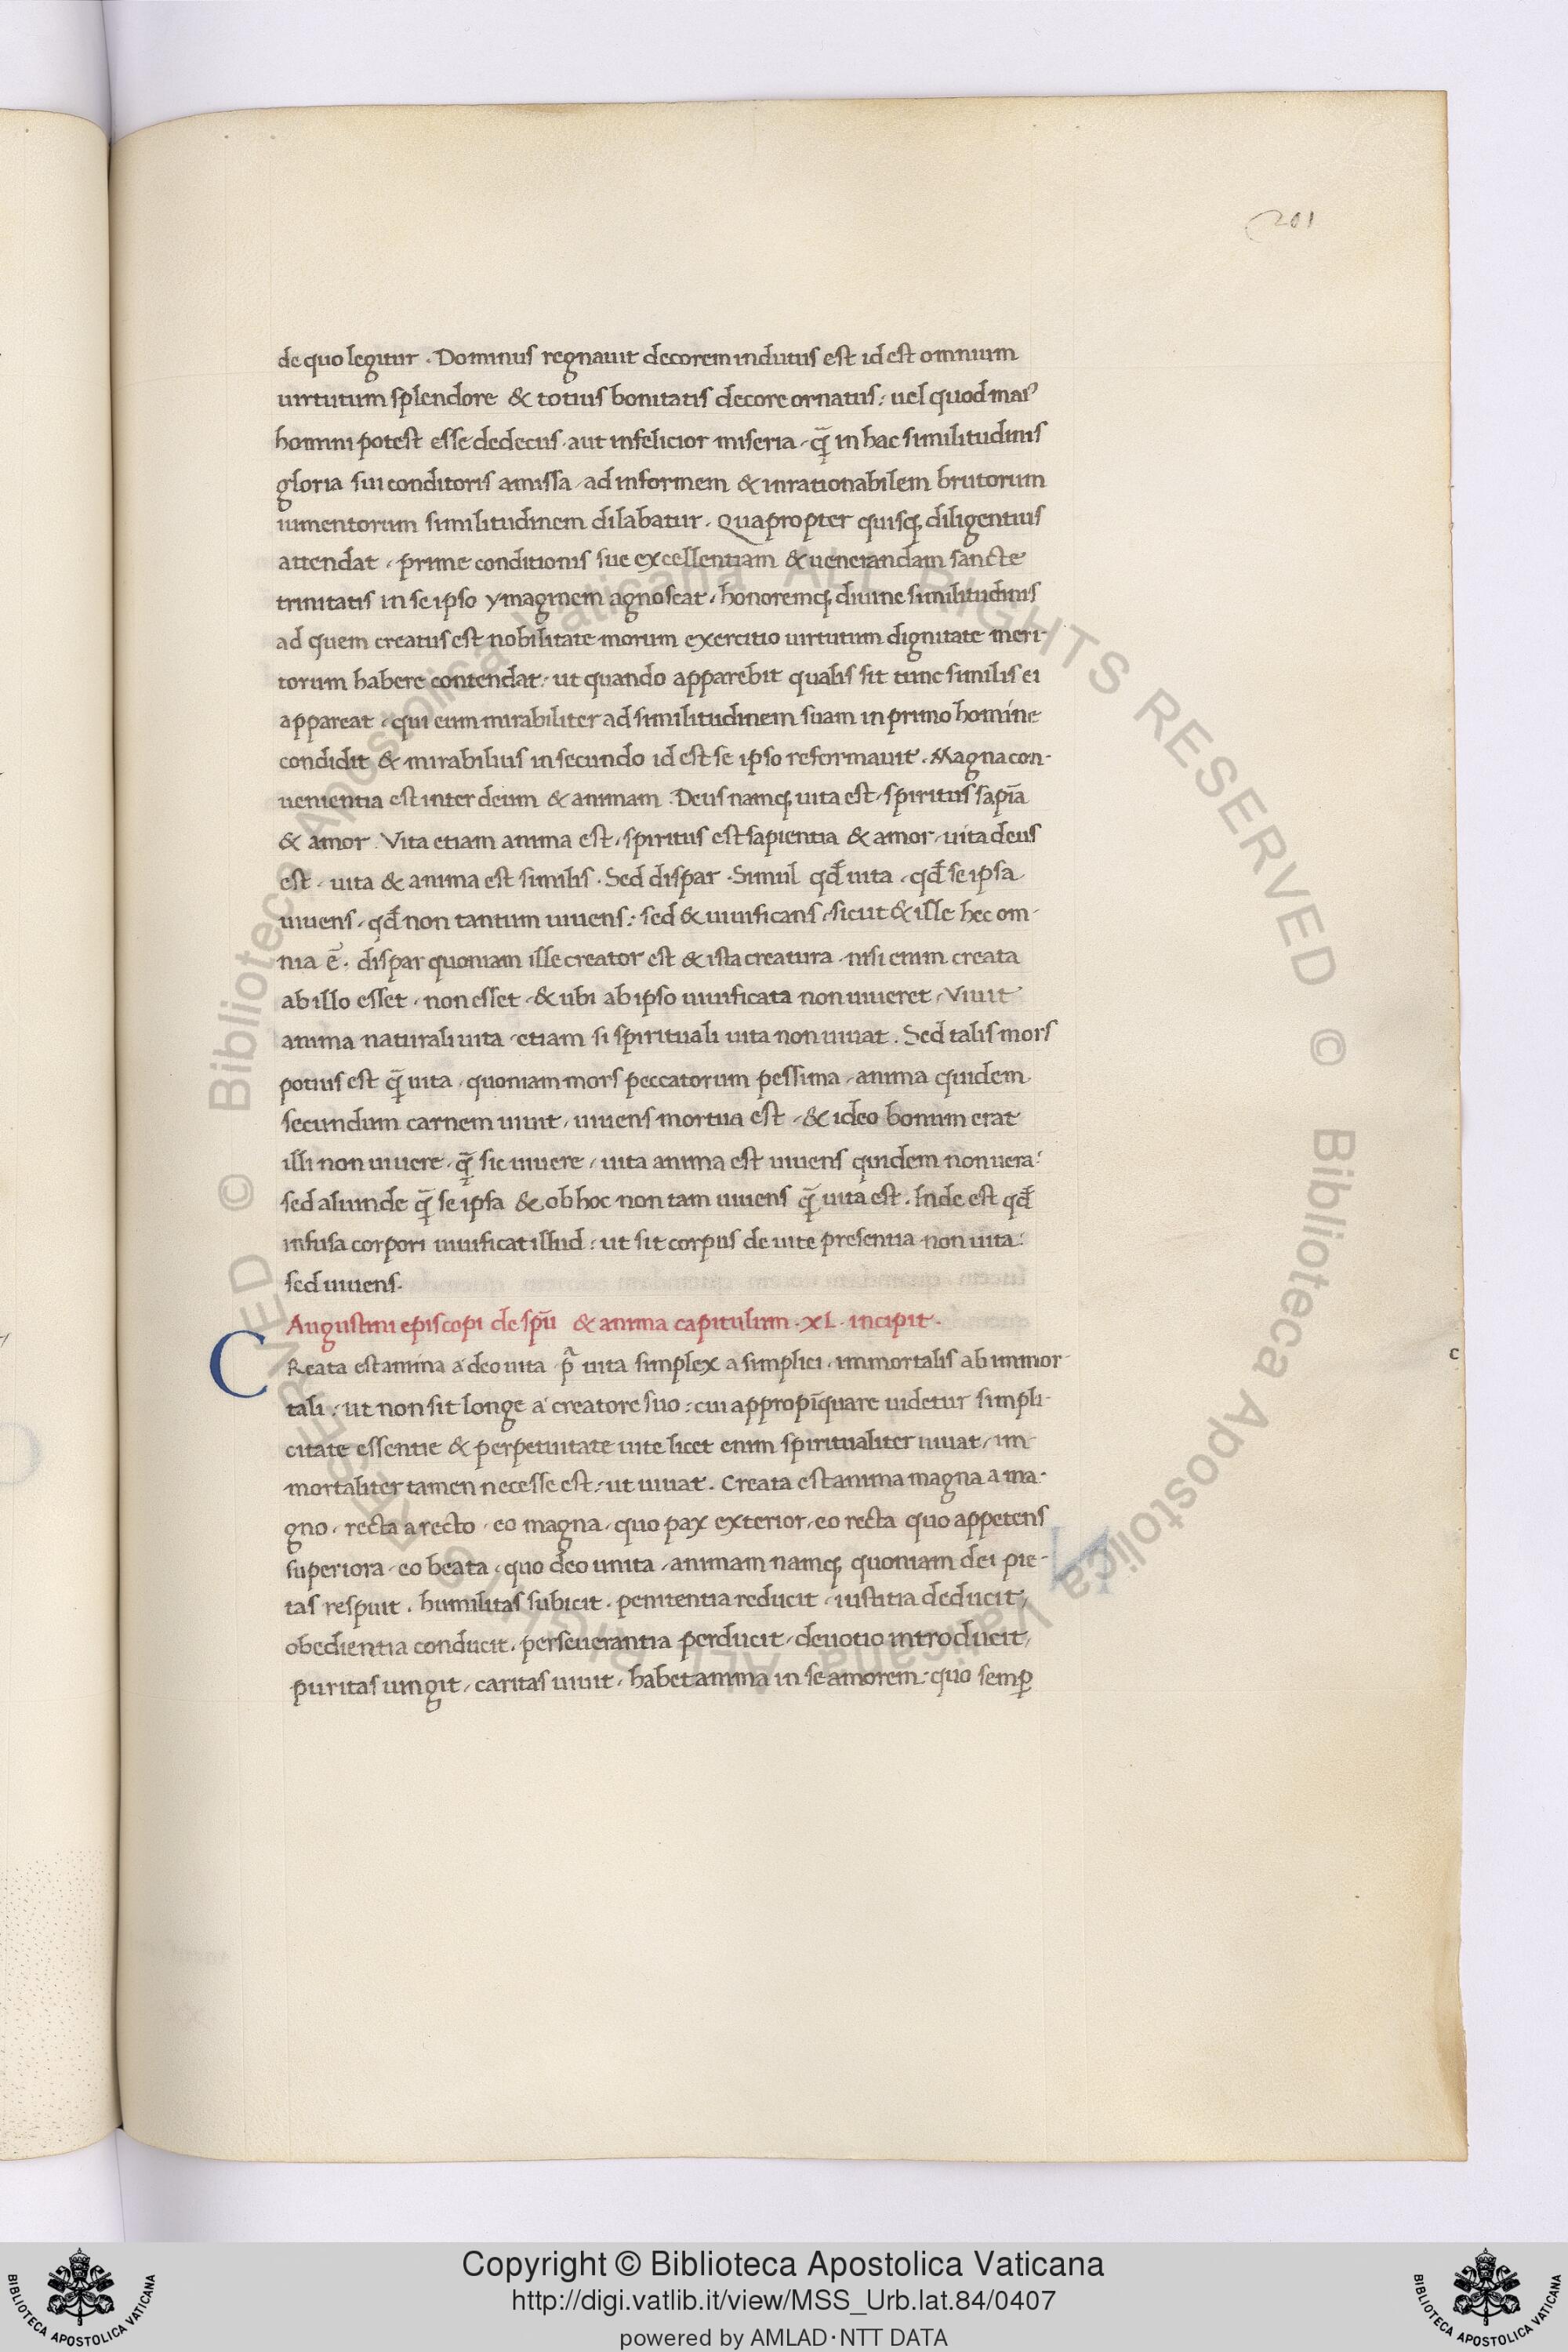 201
de quo legitur . Dominus regnauit decorem indutus est id est omnium
uirtutum splendore & totius bonitatis decore ornatus: uel quod maiꝰ
homini potest esse dedecus aut infelicior miseria q̄ in hac similitudinis
gloria sui conditoris amissa ad informem & inrationabilem brutorum
iumentorum similitudinem dilabatur. Quapropter quisq; diligentius
attendat prime conditionis sue excellentiam & uenerandam sancte
trinitatis in se ipso ymaginem agnoscat, honoremq; diuine similitudinis
ad quem creatus est nobilitate morum exercitio uirtutum dignitate meri-
torum habere contendat: ut quando apparebit qualis sit tunc similis ei
appareat qui eum mirabiliter ad similitudinem suam in primo homine
condidit & mirabilius in secundo id est se ipso reformauit. Magna con-
uenientia est inter deum & animam. Deus namq; uita est spiritus sapiā
& amor. Vita etiam anima est, spiritus est sapientia & amor, uita deus
est, uita & anima est similis. Sed dispar. Simul qđ uita, qđ se ipsa
uiuens, qđ non tantum uiuens: sed & uiuificans, sicut & ille hec om-
nia ē. dispar quoniam ille creator est & ista creatura, nisi enim creata
ab illo esset, non esset, & ubi ab ipso uiuificata non uiueret, Viuit
anima naturali uita etiam si spirituali uita non uiuat. Sed talis mors
potius est q̄ uita, quoniam mors peccatorum pessima, anima quidem
secundum carnem uiuit, uiuens mortua est, & ideo bonum erat
illi non uiuere, q̄ sic uiuere, uita anima est uiuens quidem non uera:
sed aliunde q̄ se ipsa & ob hoc non tam uiuens q̄ uita est. Inde est qđ
infusa corpori uiuificat illud: ut sit corpus de uite presentia non uita:
sed uiuens.
Augustini episcopi de spū & anima capitulum .XL. incipit.
CReata est amina a deo uita p̄ uita simplex a simplici, immortalis ab immor-
tali: ut non sit longe a creatore suo: cui appropīquare uidetur simpli-
citate essentie & perpetuitate uite licet enim spiritualiter uiuat, im-
mortaliter tamen necesse est: ut uiuat. Creata est anima magna a ma-
gno, recta a recto, eo magna, quo pax exterior, eo recta quo appetens
superiora, eo beata, quo deo unita, animam namq; quoniam dei pie-
tas respuit, humilitas subicit, penitentia reducit, iustitia deducit,
obedientia conducit, perseuerantia perducit, deuotio introducit,
puritas iungit, caritas uiuit, habet anima in se amorem: quo semꝑ
c
© Biblioteca Apostolica Vaticana ALL RIGHTS RESERVED © Biblioteca Apostolica Vaticana ALL RIGHTS RESERVED
Copyright © Biblioteca Apostolica Vaticana
http://digi.vatlib.it/view/MSS_Urb.lat.84/0407
powered by AMLAD·NTT DATA
BIBLIOTECA APOSTOLICA VATICANA
BIBLIOTECA APOSTOLICA VATICANA